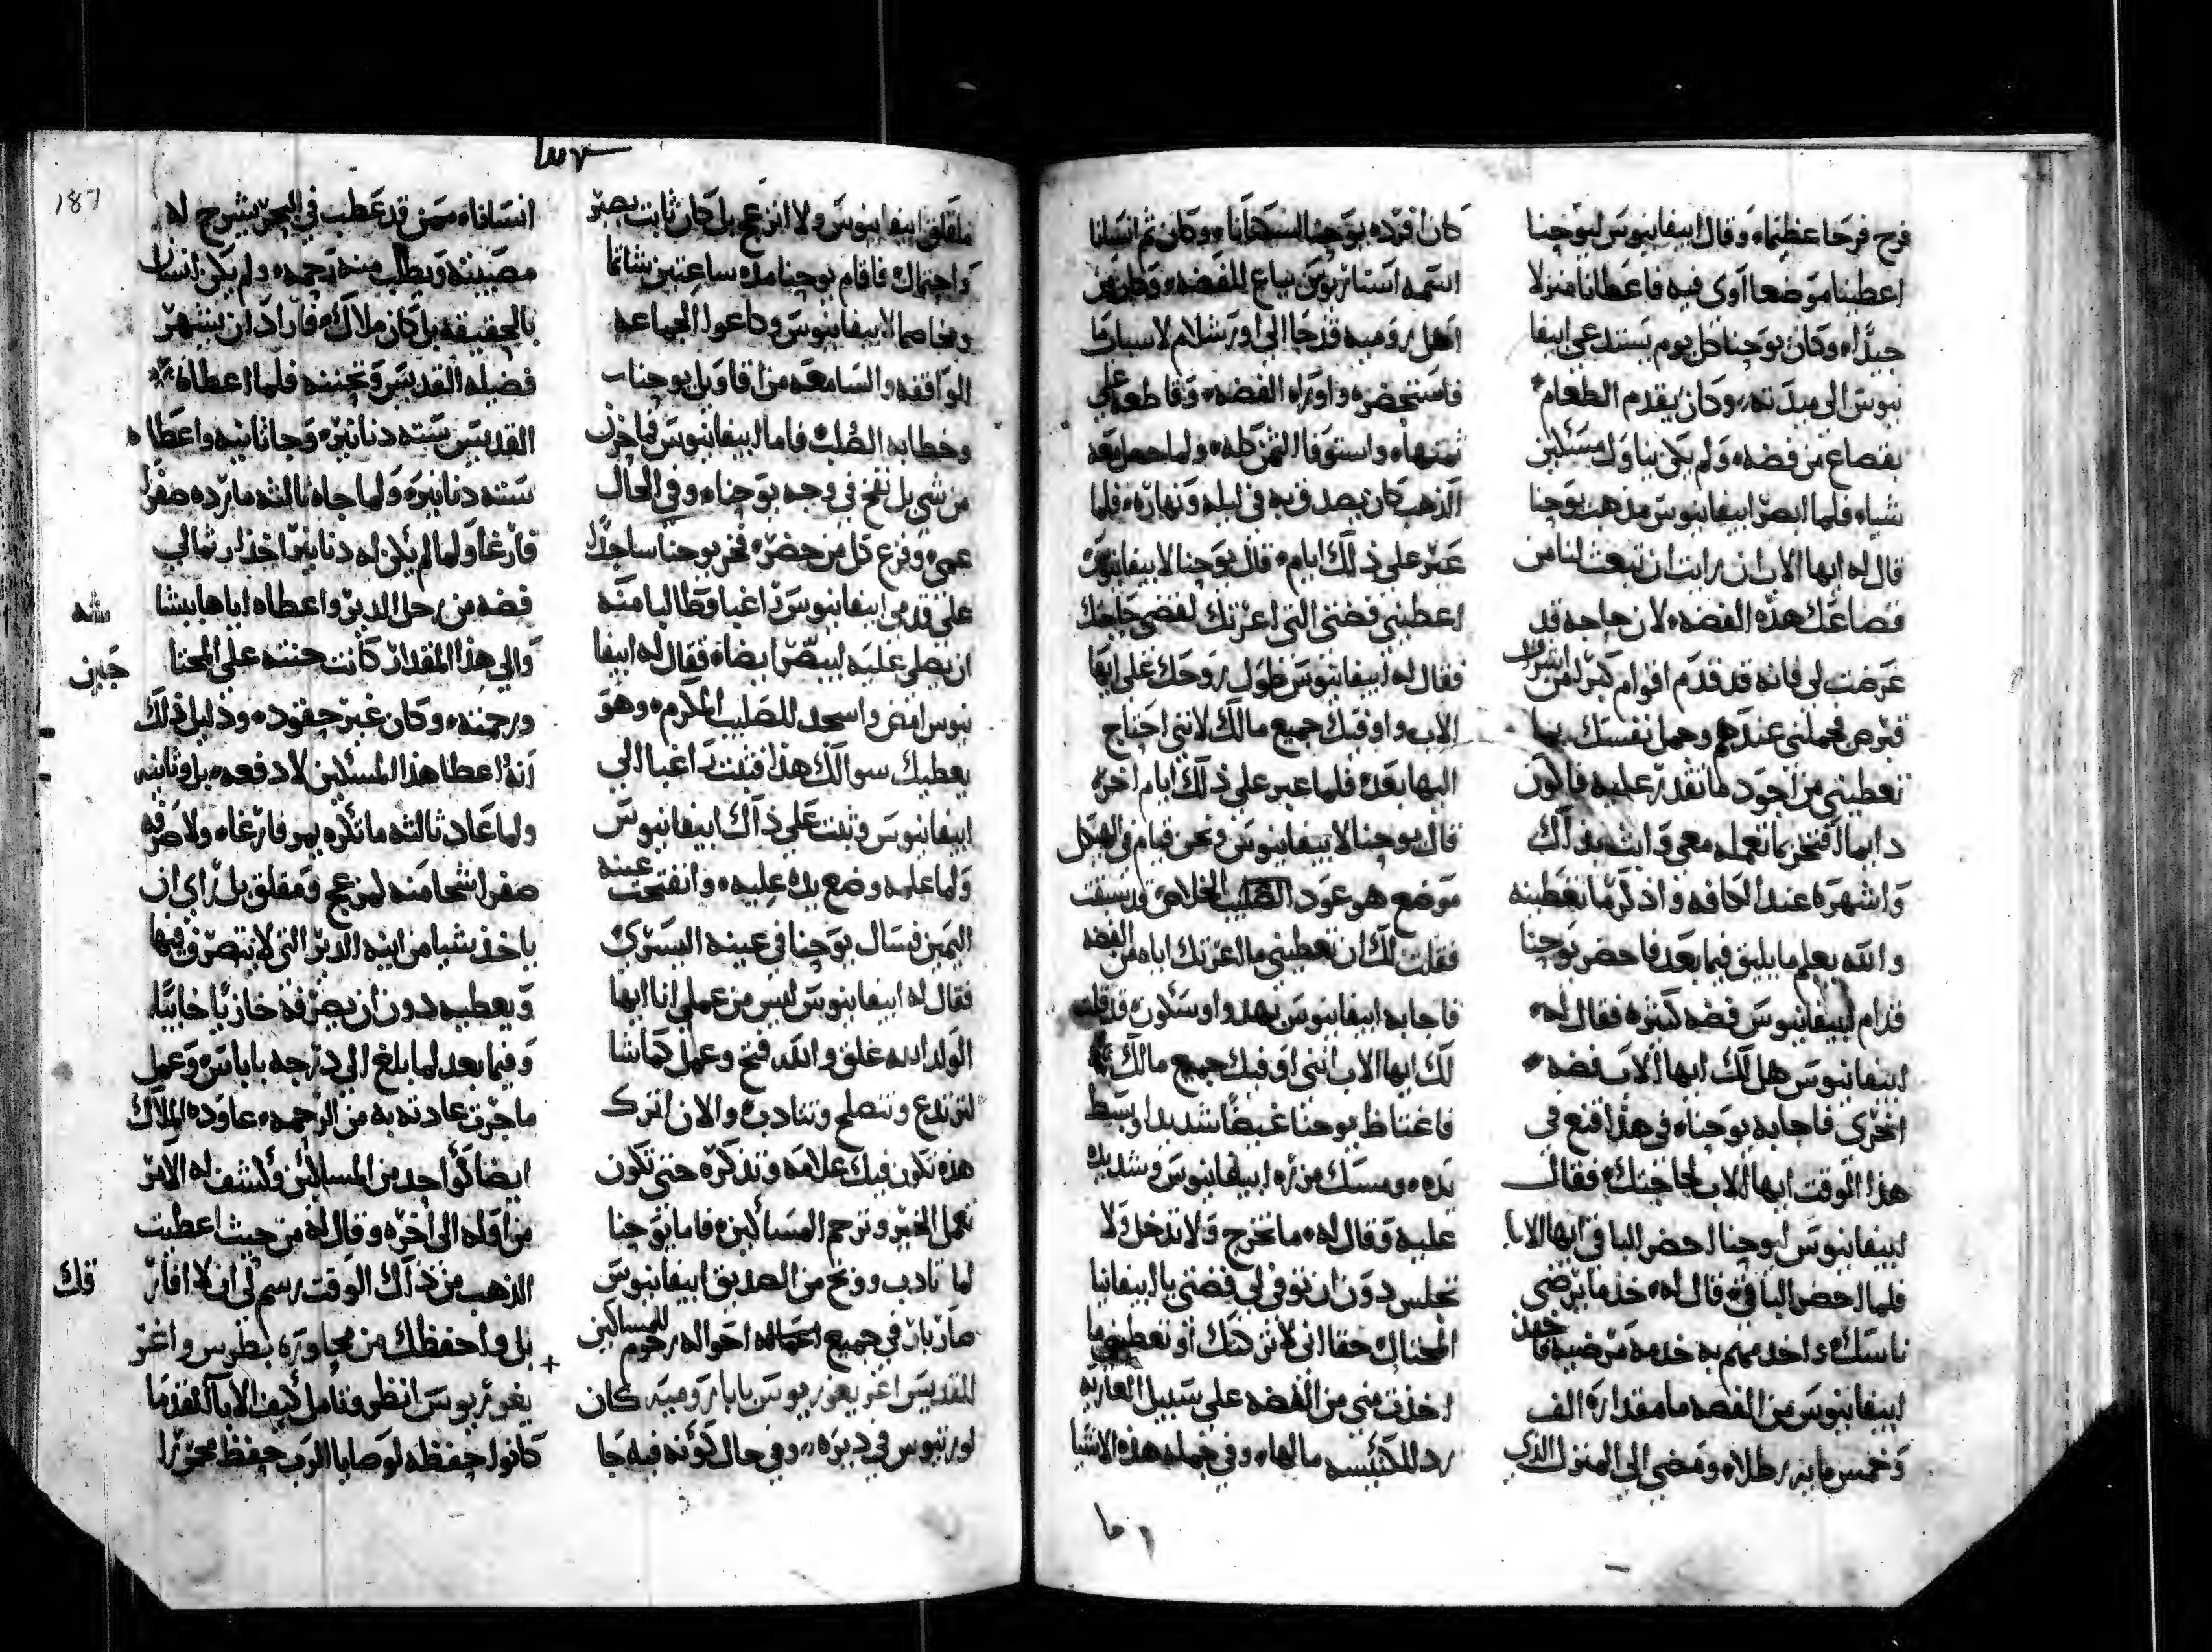 فرح فرحا عظيما، وقال ابيفانيوس ليوحنا
اعطينا موضعا اوى فيه فاعطانا منزلا
جيدًا، وكان يوحنا كل يوم يستدعي ابيفا
نيوس الى ميدته، وكان يقدم الطعام
بقصاع من فضه، ولم يكن يناول مسكين
شيا، فلما ابصر ابيفانيوس مذهب يوحنا
قال له ايها الاب ان رايت ان تبعث لنا من
قصاعك هذه الفضه، لان حاجه قد
عرضت لي فانه قد قدم اقوام كبرا من اشراف
قبرص فجملني عندهم وجمل نفسك بما
تعطيني من اجود ما تقدر عليه فاكون
دايما افتخر بما تعمله معي وابثه بذلك
واشهره عند الكافه واذكر ما تعطينه
والله يعلم ما يليق فيما بعد فاحضر يوحنا
قدام ابيفانيوس فضه كثيره فقال له
ابيفانيوس هل لك ايها الاب فضه
اخرى فاجابه يوحنا، في هذا قنع في
هذا الوقت ايها الاب لحاجتك، فقال
ابيفانيوس ليوحنا احضر الباقي ايها الابا
فلما احضر الباقي، قال له، خذ ما يرضي
ناسك، واخدمهم به خدمة مرضيه فاخذ
ابيفانيوس من الفضه ما مقداره الف
وخمس مايه رطلا، ومضى الى المنزل الذي
كان افرده يوحنا لسكنانا، وكان ثم انسانا
اسمه استاريوس يباع للفضه، وكان من
اهل روميه قد جا الى اورشلام لاسباب ما
فاستحضره واوراه الفضه، وقاطعه على
ثمنها، واستوفا الثمن كله، ولما حصل معه
الذهب كان يصدق به في ليله ونهاره، فلما
عبر على ذلك ايام، قال يوحنا لابيفانيوس
اعطيني فضتي التي اعرتك لتقضي حاجتك
فقال له ابيفانيوس طول روحك علي ايها
الاب واوفيك جميع مالك لانني احتاج
اليها بعد، فلما عبر على ذلك ايام اخر،
قال يوحنا لابيفانيوس ونحن قيام في الهيكل
موضع هو عود الصليب الخلاص قد سبقت
فقلت لك ان تعطيني ما اعرتك اياه من الفضه
فاجابه ابيفانيوس بهدو وسكون، قد قلت
لك ايها الاب انني اوفيك جميع مالك
فاغتاظ يوحنا غيضًا شديدا وبسط
يده، ومسك مزره ابيفانيوس وشد يده
عليه وقال له، ما تخرج ولا تدخل ولا
تجلس دون ان توفي لي فضتي يا ابيفانيا
المحتال، حقا اني لا تركتك او تعطيني ما
اخذت مني من الفضه على سبيل العاريه
رد للكنيسه مالها، وفي جمله هذه الاشيا
ما قلق ابيفانيوس ولا انزعج بل كان ثابت بصبر
واحتمال، فاقام يوحنا مده ساعتين شاتما
ومخاصما لابيفانيوس وداعوا الجماعه
الواقفه والسامعه من اقاويل يوحنا
وخطابه الصُلب، فاما ابيفانيوس فما حزن
من شي بل نفخ في وجه يوحنا، وفي الحال
عمي، وفزع كل من حضر، فخر يوحنا ساجدًا
على قدمي ابيفانيوس راغبا وطالبا منه
ان يصلي عليه ليبصر ايضا، فقال له ابيفا
نيوس امض واسجد للصليب المكرم، وهو
يعطيك سوالك هذا فثبت راغبا الى
ابيفانيوس وثبت على ذاك ابيفانيوس
ولما علمه وضع يده عليه، وانفتحت عينه
اليمين فسال يوحنا في عينه اليسرى
فقال له ابيفانيوس ليس من عملي انا ايها
الولد الله غلق والله فتح وعمل كما شا
لترتدع وتتصلح وتتادب والان اترك
هذه تكون فيك علامه وتذكره حتى تكون
تعمل الخير وترحم المساكين، فاما يوحنا
لما تادب ووبخ من الصديق ابيفانيوس
صار بار في جميع احواله رحوم للمساكين
للقديس اغريغوريوس بابا روميه كان
لورنيوس في ديره، وفي حال كونه فيه جا
انسانا، ممن قد عطب في البحر يشرح له
مصيبته ويطلب منه رحمه، ولم يكن انسان
بالحقيقه بل كان ملاك، فاراد ان يشهر
فضيله القديس وتحننه فلما اعطاه
القديس سته دنانير، وجا ثانيه واعطاه
سته دنانير، ولما جاه ثالثه ما رده صفرًا
فارغا ولما لم يكن له دنانير اخذ ارثما لي
فضه من رحل الدير واعطاه اياها يشا
والى هذا المقدار كانت حنته على المحتا
جين
ورحمته، وكان غير حقود، ودليل ذلك
انه اعطا هذا المسكين لا دفعه، بل وثانيه
ولما عاد ثالثه ما نكره يمر فارغا، ولا صرفه
صفرا شحا منه لمزعج ومقلق بل راي ان
ياخذ شيا من انيه الدير التي لا يتصرف فيها
ويعطيه دون ان يصرفه خازيًا خايبًا،
وفيما بعد لما بلغ الى درجه باباس، وعمل
ما جرت عادته به من الرحمه، عاوده الملاك
ايضا كواحد من المساكين وكشف له الامر
من اوله الى اخره وقال له من حيث اعطيت
الذهب من ذاك الوقت رسم لي ان لا افار
قك
بل واحفظك من مجاوره بطرس واغر
يغوريوس انظر وتامل كيف الابا القدما
كانوا حفظه لوصايا الرب حفظ محررا
187